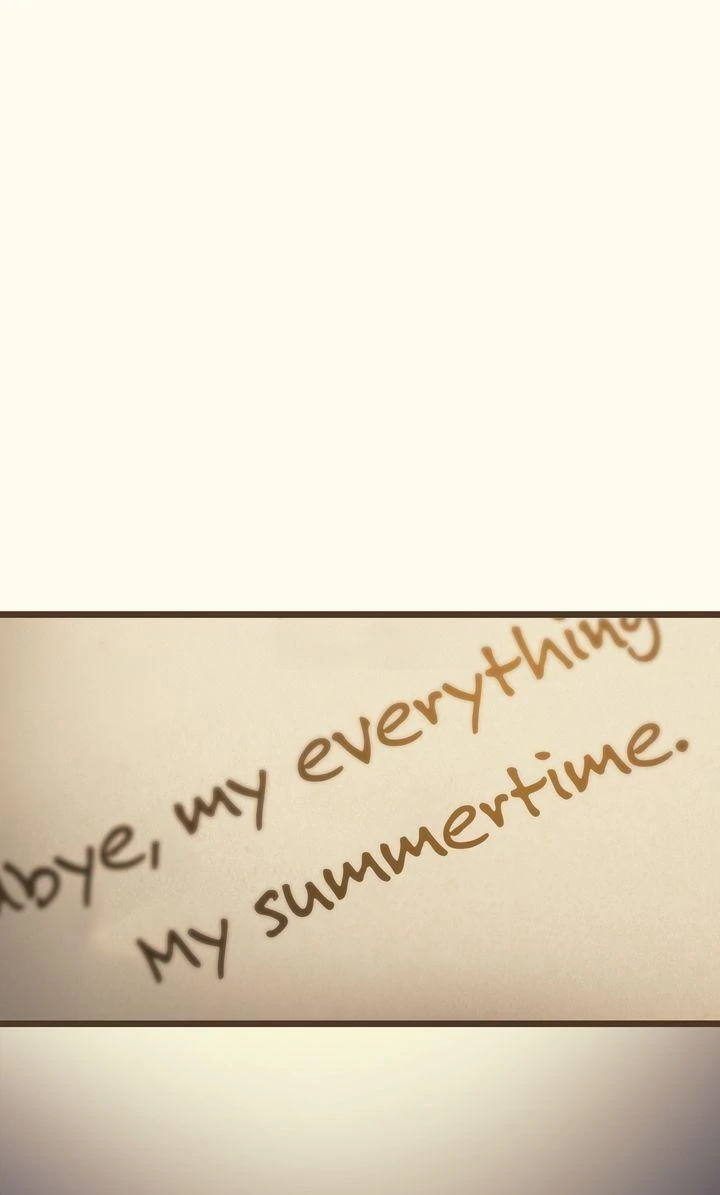 bye, my everything
My summertime.